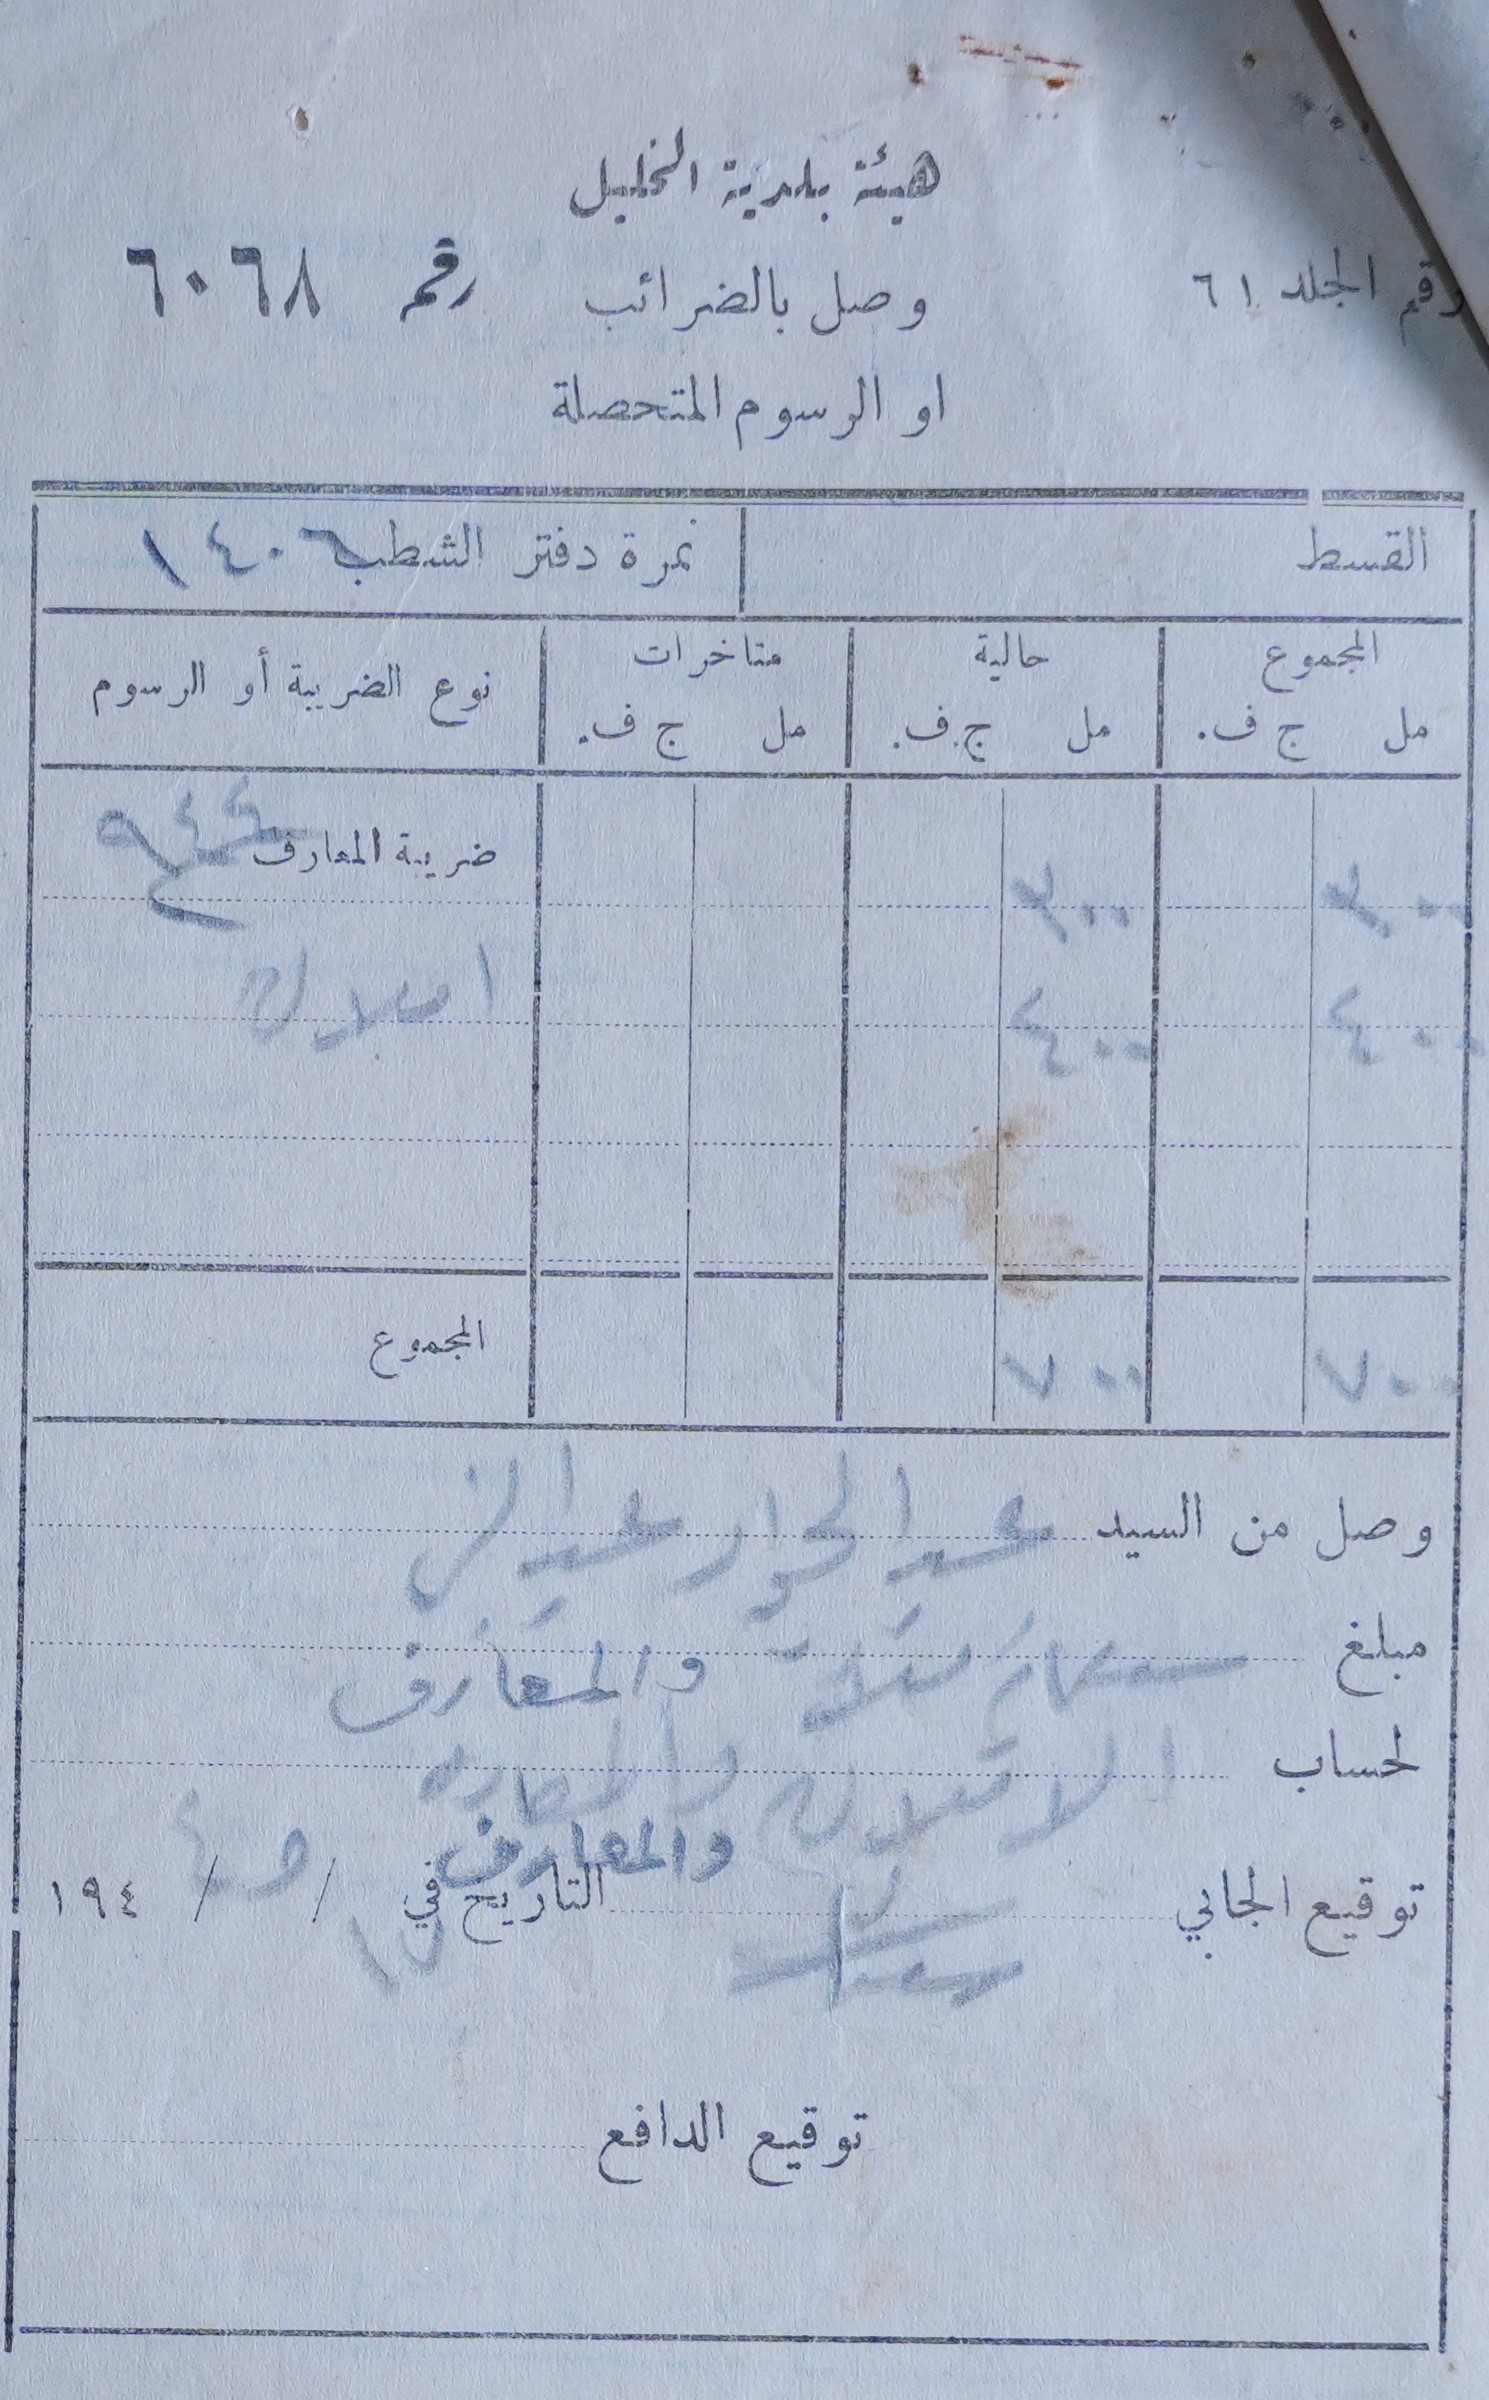 هيئة بلدية الخليل
رقم الجلد ٦١ وصل بالضرائب رقم ٦٠٦٨
او الرسوم المتحصلة
القسط نمرة دفتر الشطب ١٤٠٦
المجموع حالية متاخرات نوع الضريبة أو الرسوم
مل ج ف. مل ج.ف. مل ج ف.
٣٠٠ ٣٠٠ ضريبة المعارف
٤٠٠ ٤٠٠ املاك
٧٠٠ ٧٠٠ المجموع
وصل من السيد عبد
مبلغ والمعارف
لحساب الاملاك والمعارف
والمعارف
توقيع الجابي التاريخ في / / ١٩٤
توقيع الدافع